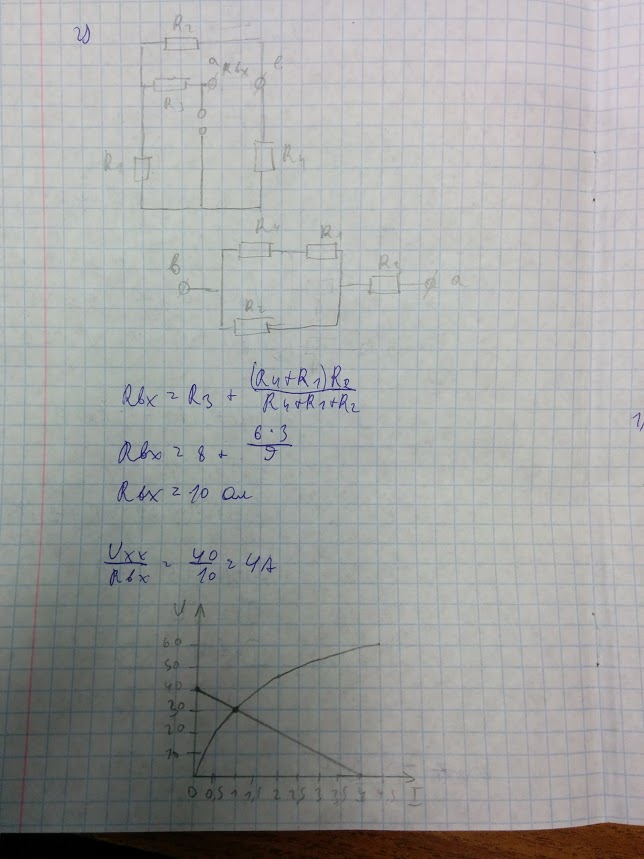 2)
R2
a Rвх в
R3
R1 R4
R4 R1
в R3 a
R2
Rвх = R3 + (R4+R1)R2 / R4+R1+R2
Rвх = 8 + 6·3 / 9
Rвх = 10 Ом
Uxx / Rвх = 40 / 10 = 4A
U
60
50
40
30
20
10
0 0,5 1 1,5 2 2,5 3 3,5 4 4,5 I